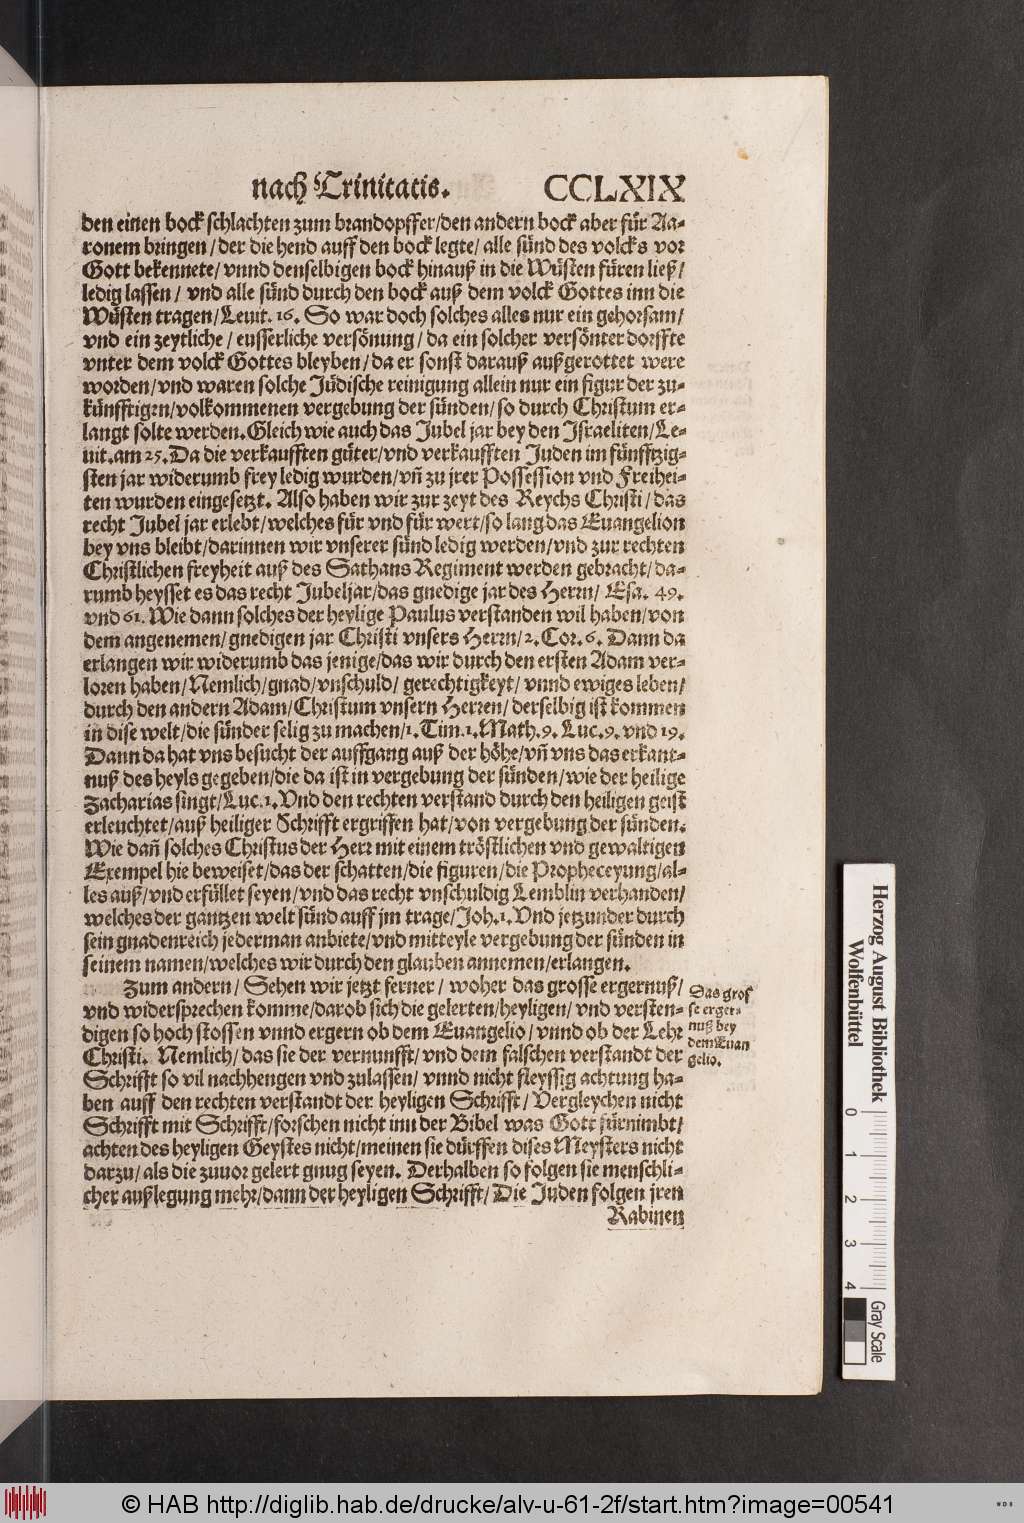 nach Trinitatis. CCLXIX
den einen bock schlachten zum brandopffer/den andern bock aber für Aa-
ronem bringen/der die hend auff den bock legte/alle sünd des volcks vor
Gott bekennete/vnnd denselbigen bock hinauß in die Wüsten füren ließ/
ledig lassen/vnd alle sünd durch den bock auß dem volck Gottes inn die
Wüsten tragen/Leuit. 16. So war doch solches alles nur ein gehorsam/
vnd ein zeytliche/eusserliche versönung/da ein solcher versönter dorffte
vnter dem volck Gottes bleyben/da er sonst darauß außgerottet were
worden/vnd waren solche Jüdische reinigung allein nur ein figur der zu-
künfftigen/volkommenen vergebung der sünden/so durch Christum er-
langt solte werden. Gleich wie auch das Jubel jar bey den Israeliten/Le-
uit. am 25. Da die verkaufften güter/vnd verkaufften Juden im fünfftzig-
sten jar widerumb frey ledig wurden/vñ zu jrer Possession vnd Freihei-
ten wurden eingesetzt. Also haben wir zur zeyt des Reychs Christi/das
recht Jubel jar erlebt/welches für vnd für wert/so lang das Euangelion
bey vns bleibt/darinnen wir vnserer sünd ledig werden/vnd zur rechten
Christlichen freyheit auß des Sathans Regiment werden gebracht/da-
rumb heysset es das recht Jubeljar/das gnedige jar des Herrn/Esa. 49.
vnd 61. Wie dann solches der heylige Paulus verstanden wil haben/von
dem angenemen/gnedigen jar Christi vnsers Herrn/2. Cor. 6. Dann da
erlangen wir widerumb das jenige/das wir durch den ersten Adam ver-
loren haben/Nemlich/gnad/vnschuld/gerechtigkeyt/vnnd ewiges leben/
durch den andern Adam/Christum vnsern Herren/derselbig ist kommen
in dise welt/die sünder selig zu machen/1. Tim. 1. Math. 9. Luc. 9. vnd 19.
Dann da hat vns besucht der auffgang auß der höhe/vñ vns das erkant-
nuß des heyls gegeben/die da ist in vergebung der sünden/wie der heilige
Zacharias singt/Luc. 1. Vnd den rechten verstand durch den heiligen geist
erleuchtet/auß heiliger Schrifft ergriffen hat/von vergebung der sünden.
Wie dañ solches Christus der Herr mit einem tröstlichen vnd gewaltigen
Exempel hie beweiset/das der schatten/die figuren/die Propheceyung/al-
les auß/vnd erfüllet seyen/vnd das recht vnschuldig Lemblin verhanden/
welches der gantzen welt sünd auff jm trage/Joh. 1. Vnd jetzunder durch
sein gnadenreich jederman anbiete/vnd mitteyle vergebung der sünden in
seinem namen/welches wir durch den glauben annemen/erlangen.
Zum andern/Sehen wir jetzt ferner/woher das grosse ergernuß/
vnd widersprechen komme/darob sich die gelerten/heyligen/vnd versten-
digen so hoch stossen vnnd ergern ob dem Euangelio/vnnd ob der Lehr
Christi. Nemlich/das sie der vernunfft/vnd dem falschen verstandt der
Schrifft so vil nachhengen vnd zulassen/vnnd nicht fleyssig achtung ha-
ben auff den rechten verstandt der heyligen Schrifft/Vergleychen nicht
Schrifft mit Schrifft/forschen nicht inn der Bibel was Gott fürnimbt/
achten des heyligen Geystes nicht/meinen sie dürffen dises Meysters nicht
darzu/als die zuuor gelert gnug seyen. Derhalben so folgen sie menschli-
cher außlegung mehr/dann der heyligen Schrifft/Die Juden folgen jren
Rabinen
Das gros
se erger-
nuß bey
dem Euan
gelio.
Herzog August Bibliothek
Wolfenbüttel
0 1 2 3 4
Gray Scale
© HAB http://diglib.hab.de/drucke/alv-u-61-2f/start.htm?image=00541
WDB